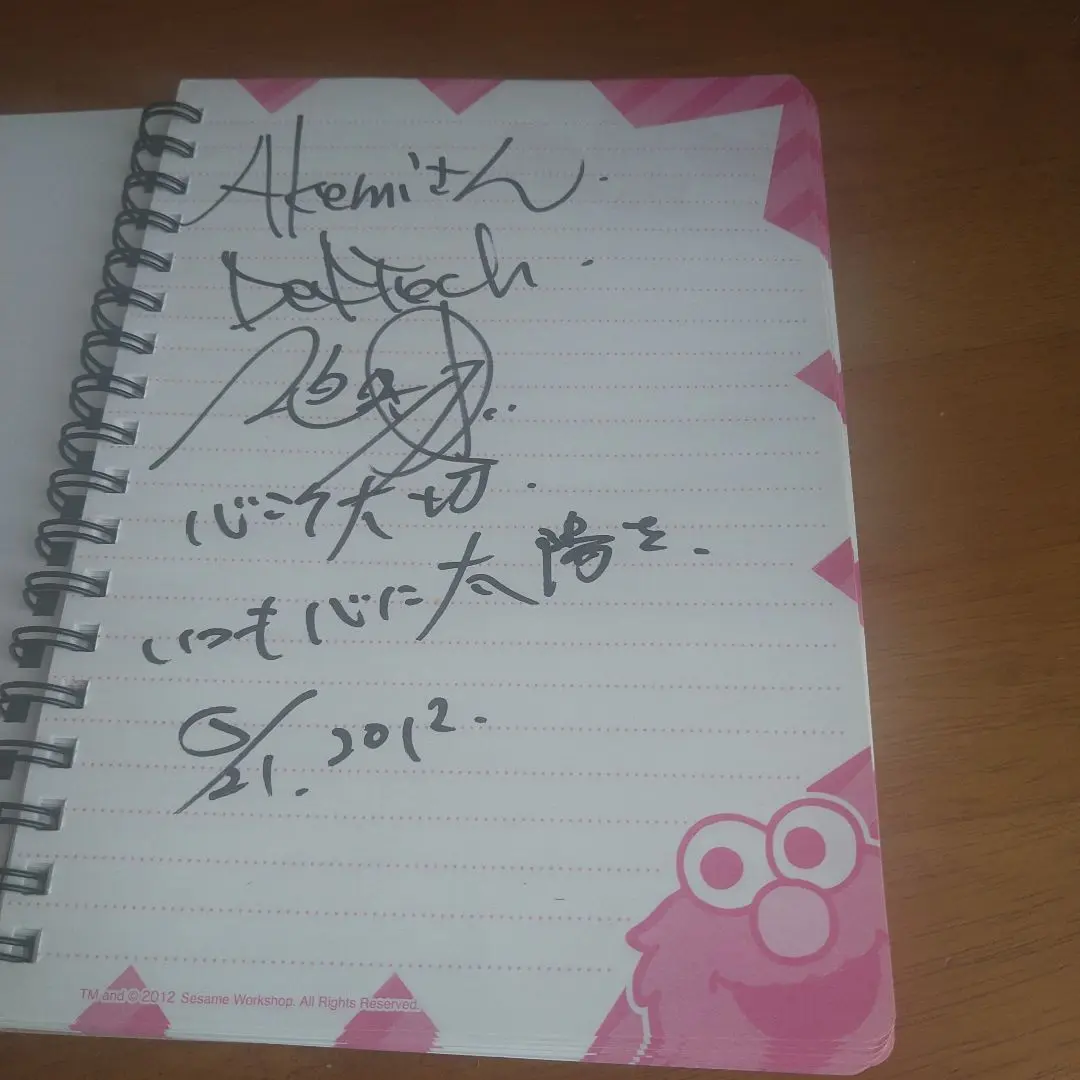 Akemiさん.
DefTech.
心こそ大切.
いつも心に太陽を.
6/21.2012.
TM and © 2012 Sesame Workshop. All Rights Reserved.